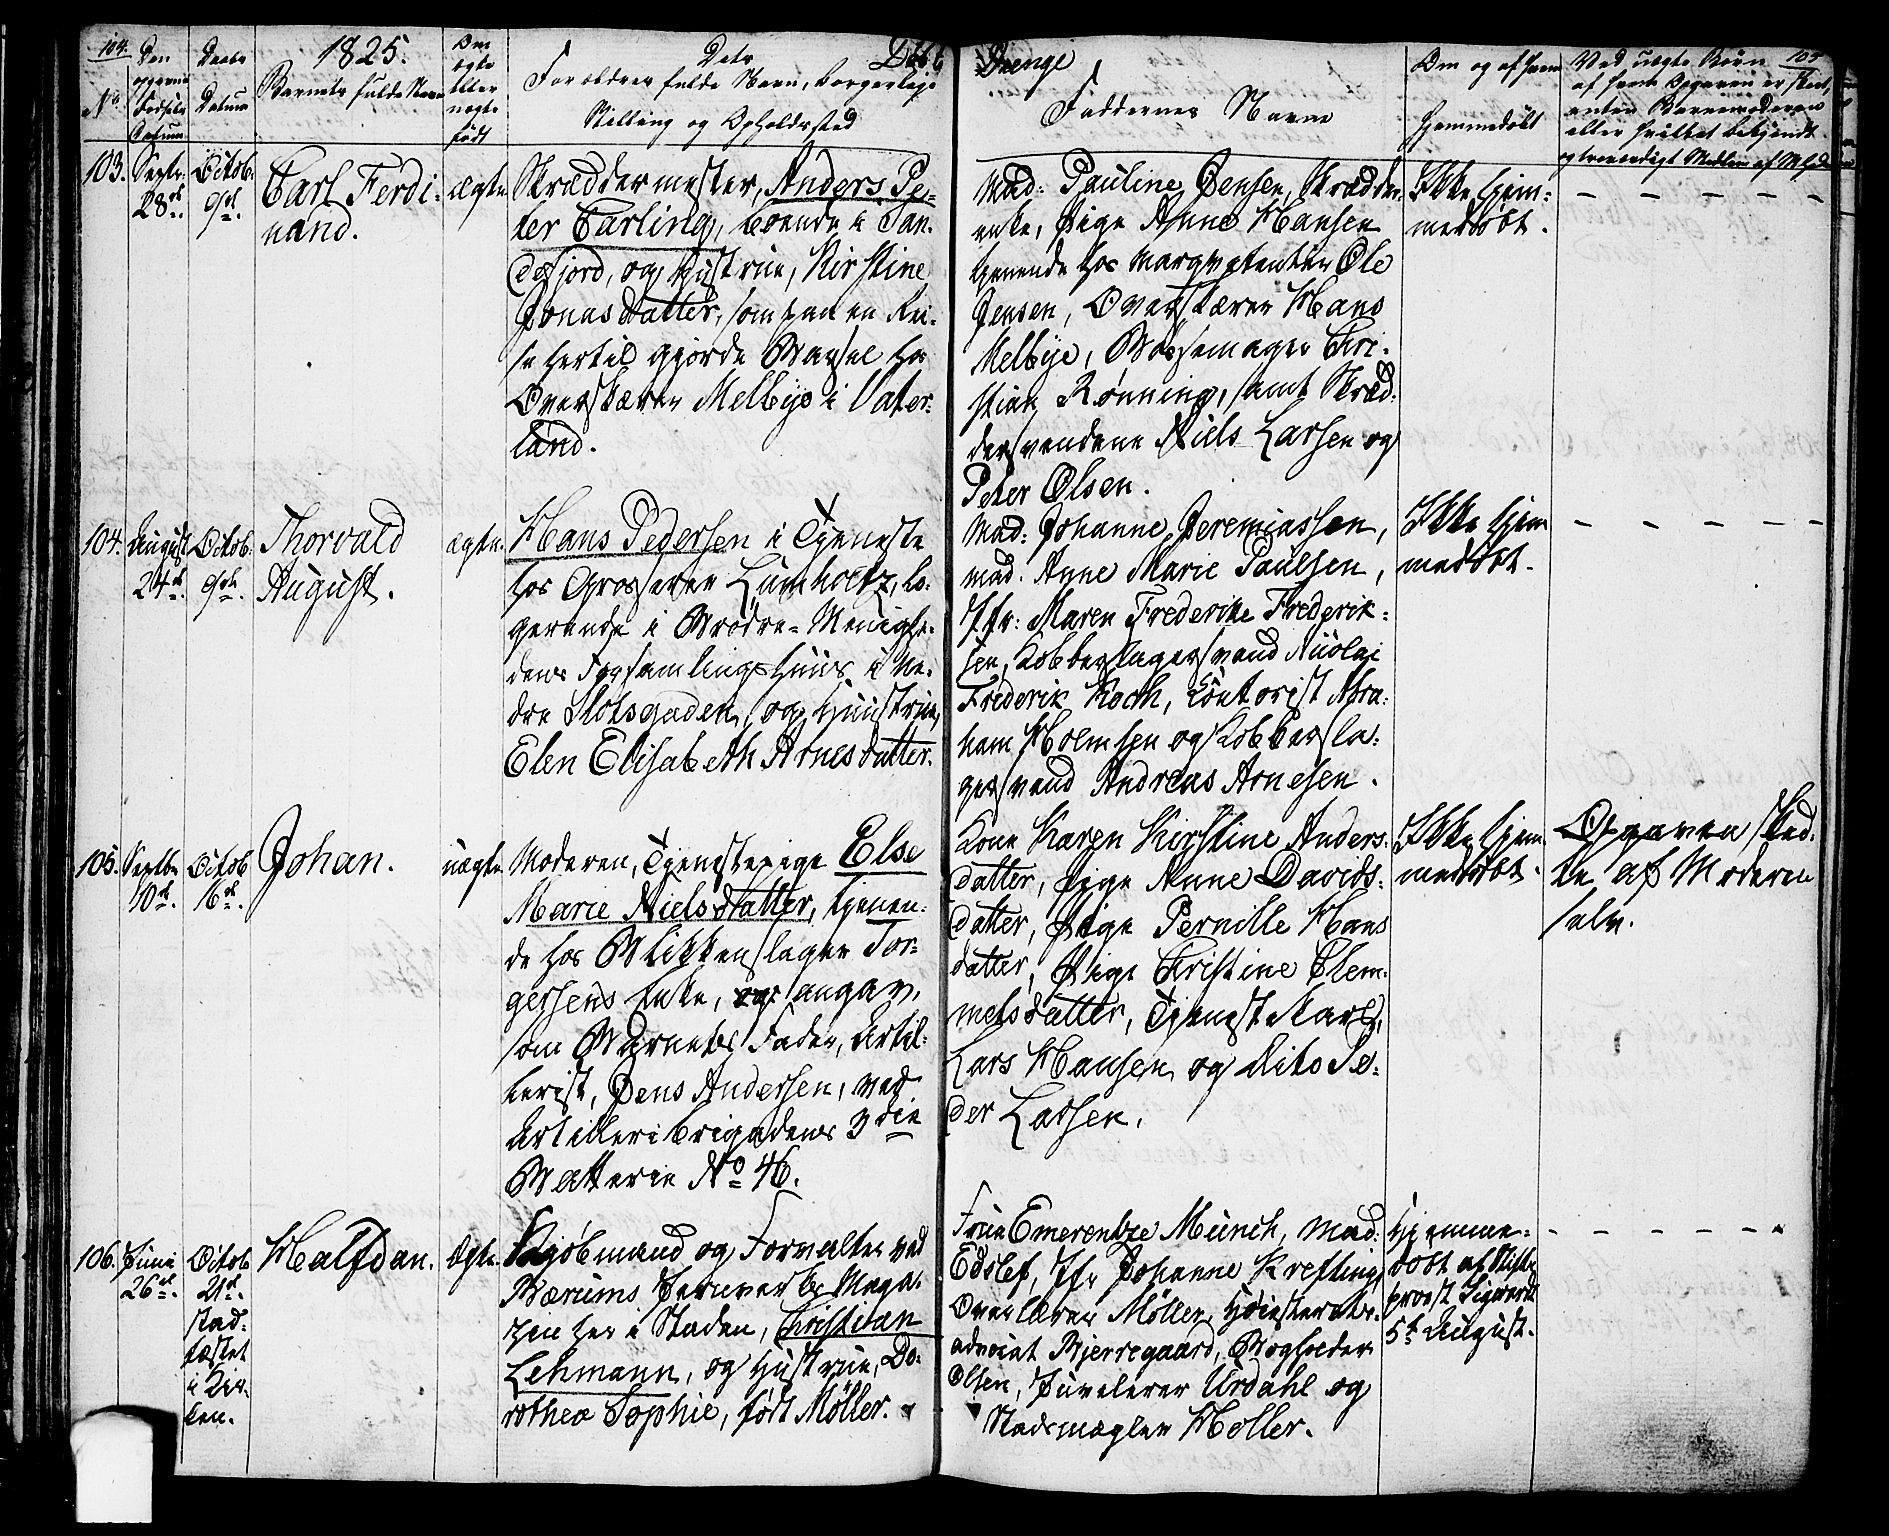 104.
Den
No.
Fødsels
Datum
Daabs
Datum
1825.
Barnets fulde Navn
Om
ægte
eller
uægte
født
Døbte
Forældres fulde Navn, borgerlige
Stilling og Opholdssted
Drenge
Faddernes Navne
Om og af hvem
hjemmedøbt
Ved uægte Børn
105
103.
Septr.
28de.
Octob.
9de.
Carl Ferdi-
nand.
ægte
Skræddermester, Anders Pe-
ter Carling, boende i San-
defjord, og Hustrue, Kirstine
Jonasdatter, som paa en Rei-
se hertil gjorde Barsel hos
Overskærer Melbye i Vater-
land.
Mad: Pauline Jensen, Skrædder-
enke, Pige Anne Hansen
tjenende hos Marqvetenter Ole
Jensen, Overskærer Hans
Melbye, Bøssemager Chri-
stian Rønning, samt Skræd-
dersvendene Niels Larsen og
Peter Olsen.
Ikke hjem-
medøbt.
104.
August
24de.
Octob.
9de.
Thorvald
August.
ægte.
Hans Pedersen i Tjeneste
hos Grosserer Lumholtz, lo-
gerende i Brødre-Menighe-
dens Forsamlingshuus i Ne-
dre Slotsgaden, og Huustrue,
Elen Elisabeth Arnesdatter.
Mad: Johanne Jeremiassen,
Mad. Anne Marie Paulsen,
Jfr: Maren Frederikke Frederik-
sen, Kobberslagersvend Nicolai
Frederik Koch, Contorist Abra-
ham Holmsen og Kobbersla-
gersvend Andreas Arnesen.
Ikke hjem
medøbt.
105.
Septbr
10de.
Octob
16de.
Johan.
uægte
Moderen, Tjenestepige Else
Marie Nielsdatter, tjenen-
de hos Blikkenslager Tor-
gersens Enke, og angav,
som Barnets Fader, Artil-
lerist, Jens Andersen, ved
Artilleribrigadens 3die
Batterie No 46.
Kone Karen Kirstine Anders-
datter, Pige Anne Davids-
datter, Pige Pernille Hans
datter, Pige Christine Clem-
metsdatter, Tjenestekarl,
Lars Hansen og dito Pe-
der Larsen.
Ikke hjem
medøbt.
Opgaven sked-
te af Moderen
selv.
106.
Juni
26de.
Octob
21de.
stad-
fæstet
i Kir-
ken.
Halfdan.
Ægte.
Kjøbmand og Forvalter ved
Bærums Jernverks Maga-
zin her i Staden, Christian
Lehmann, og Hustrue, Do-
rothea Sophie, født Møller.
Frue Emerentze Munch, Mad:
Edslef, Jfr Johanne Krefting,
Overlærer Møller, Høiesterets-
advocat Bjerregaard, Bogholder
Olsen, Juvelerer Urdahl og
Stadsmægler Møller.
Hjemme-
døbt af Stifts-
provst Sigwardt
5te August.